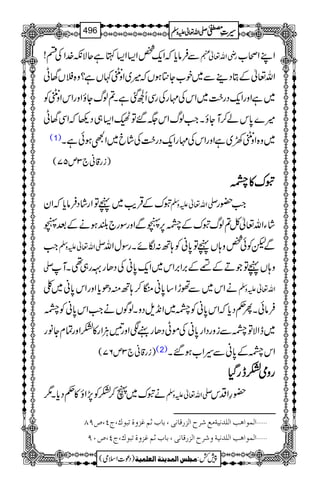 سیرتِ مصطفیٰ صلی اللہ تعالیٰ علیہ وسلم 496
اپنے اصحاب رضی اللہ تعالیٰ عنہم سے فرمایا کہ ایک شخص ایسا ایسا کہتا ہے حالانکہ خدا کی قسم!
اللہ تعالیٰ کے بتا دینے سے میں خوب جانتا ہوں کہ میری اونٹنی کہاں ہے؟ وہ فلاں گھاٹی
میں ہے اور ایک درخت میں اس کی مہار کی رسی الجھ گئی ہے۔ تم لوگ جاؤ اور اس اونٹنی کو
میرے پاس لے کر آ جاؤ۔ جب لوگ اس جگہ گئے تو ٹھیک ایسا ہی دیکھا کہ اسی گھاٹی
میں وہ اونٹنی کھڑی ہے اور اس کی مہار ایک درخت کی شاخ میں الجھی ہوئی ہے۔ (1)
(زرقانی ج۳ ص۷۵)
تبوک کا چشمہ
جب حضور صلی اللہ تعالیٰ علیہ وسلم تبوک کے قریب میں پہنچے تو ارشاد فرمایا کہ ان
شاء اللہ تعالیٰ کل تم لوگ تبوک کے چشمہ پر پہنچو گے اور سورج بلند ہونے کے بعد پہنچو
گے لیکن کوئی شخص وہاں پہنچے تو پانی کو ہاتھ نہ لگائے۔ رسول اللہ صلی اللہ تعالیٰ علیہ وسلم جب
وہاں پہنچے تو جوتے کے تسمے کے برابر اس میں ایک پانی کی دھار بہہ رہی تھی۔ آپ صلی
اللہ تعالیٰ علیہ وسلم نے اس میں سے تھوڑا سا پانی منگا کر ہاتھ منہ دھویا اور اس پانی میں کلی
فرمائی۔ پھر حکم دیا کہ اس پانی کو چشمہ میں انڈیل دو۔ لوگوں نے جب اس پانی کو چشمہ
میں ڈالا تو چشمہ سے زوردار پانی کی موٹی دھار بہنے لگی اور تیس ہزار کا لشکر اور تمام جانور
اس چشمہ کے پانی سے سیراب ہو گئے۔ (2) (زرقانی ج۳ ص۷۶)
رومی لشکر ڈر گیا
حضورِ اقدس صلی اللہ تعالیٰ علیہ وسلم نے تبوک میں پہنچ کر لشکر کو پڑاؤ کا حکم دیا۔ مگر
1.....المواهب اللدنية مع شرح الزرقانی ، باب ثم غزوة تبوك،ج٤،ص٨٩
2.....المواهب اللدنية وشرح الزرقانی ، باب ثم غزوة تبوك،ج٤،ص٩٠
پیش کش: مجلس المدینۃ العلمیۃ (دعوتِ اسلامی)